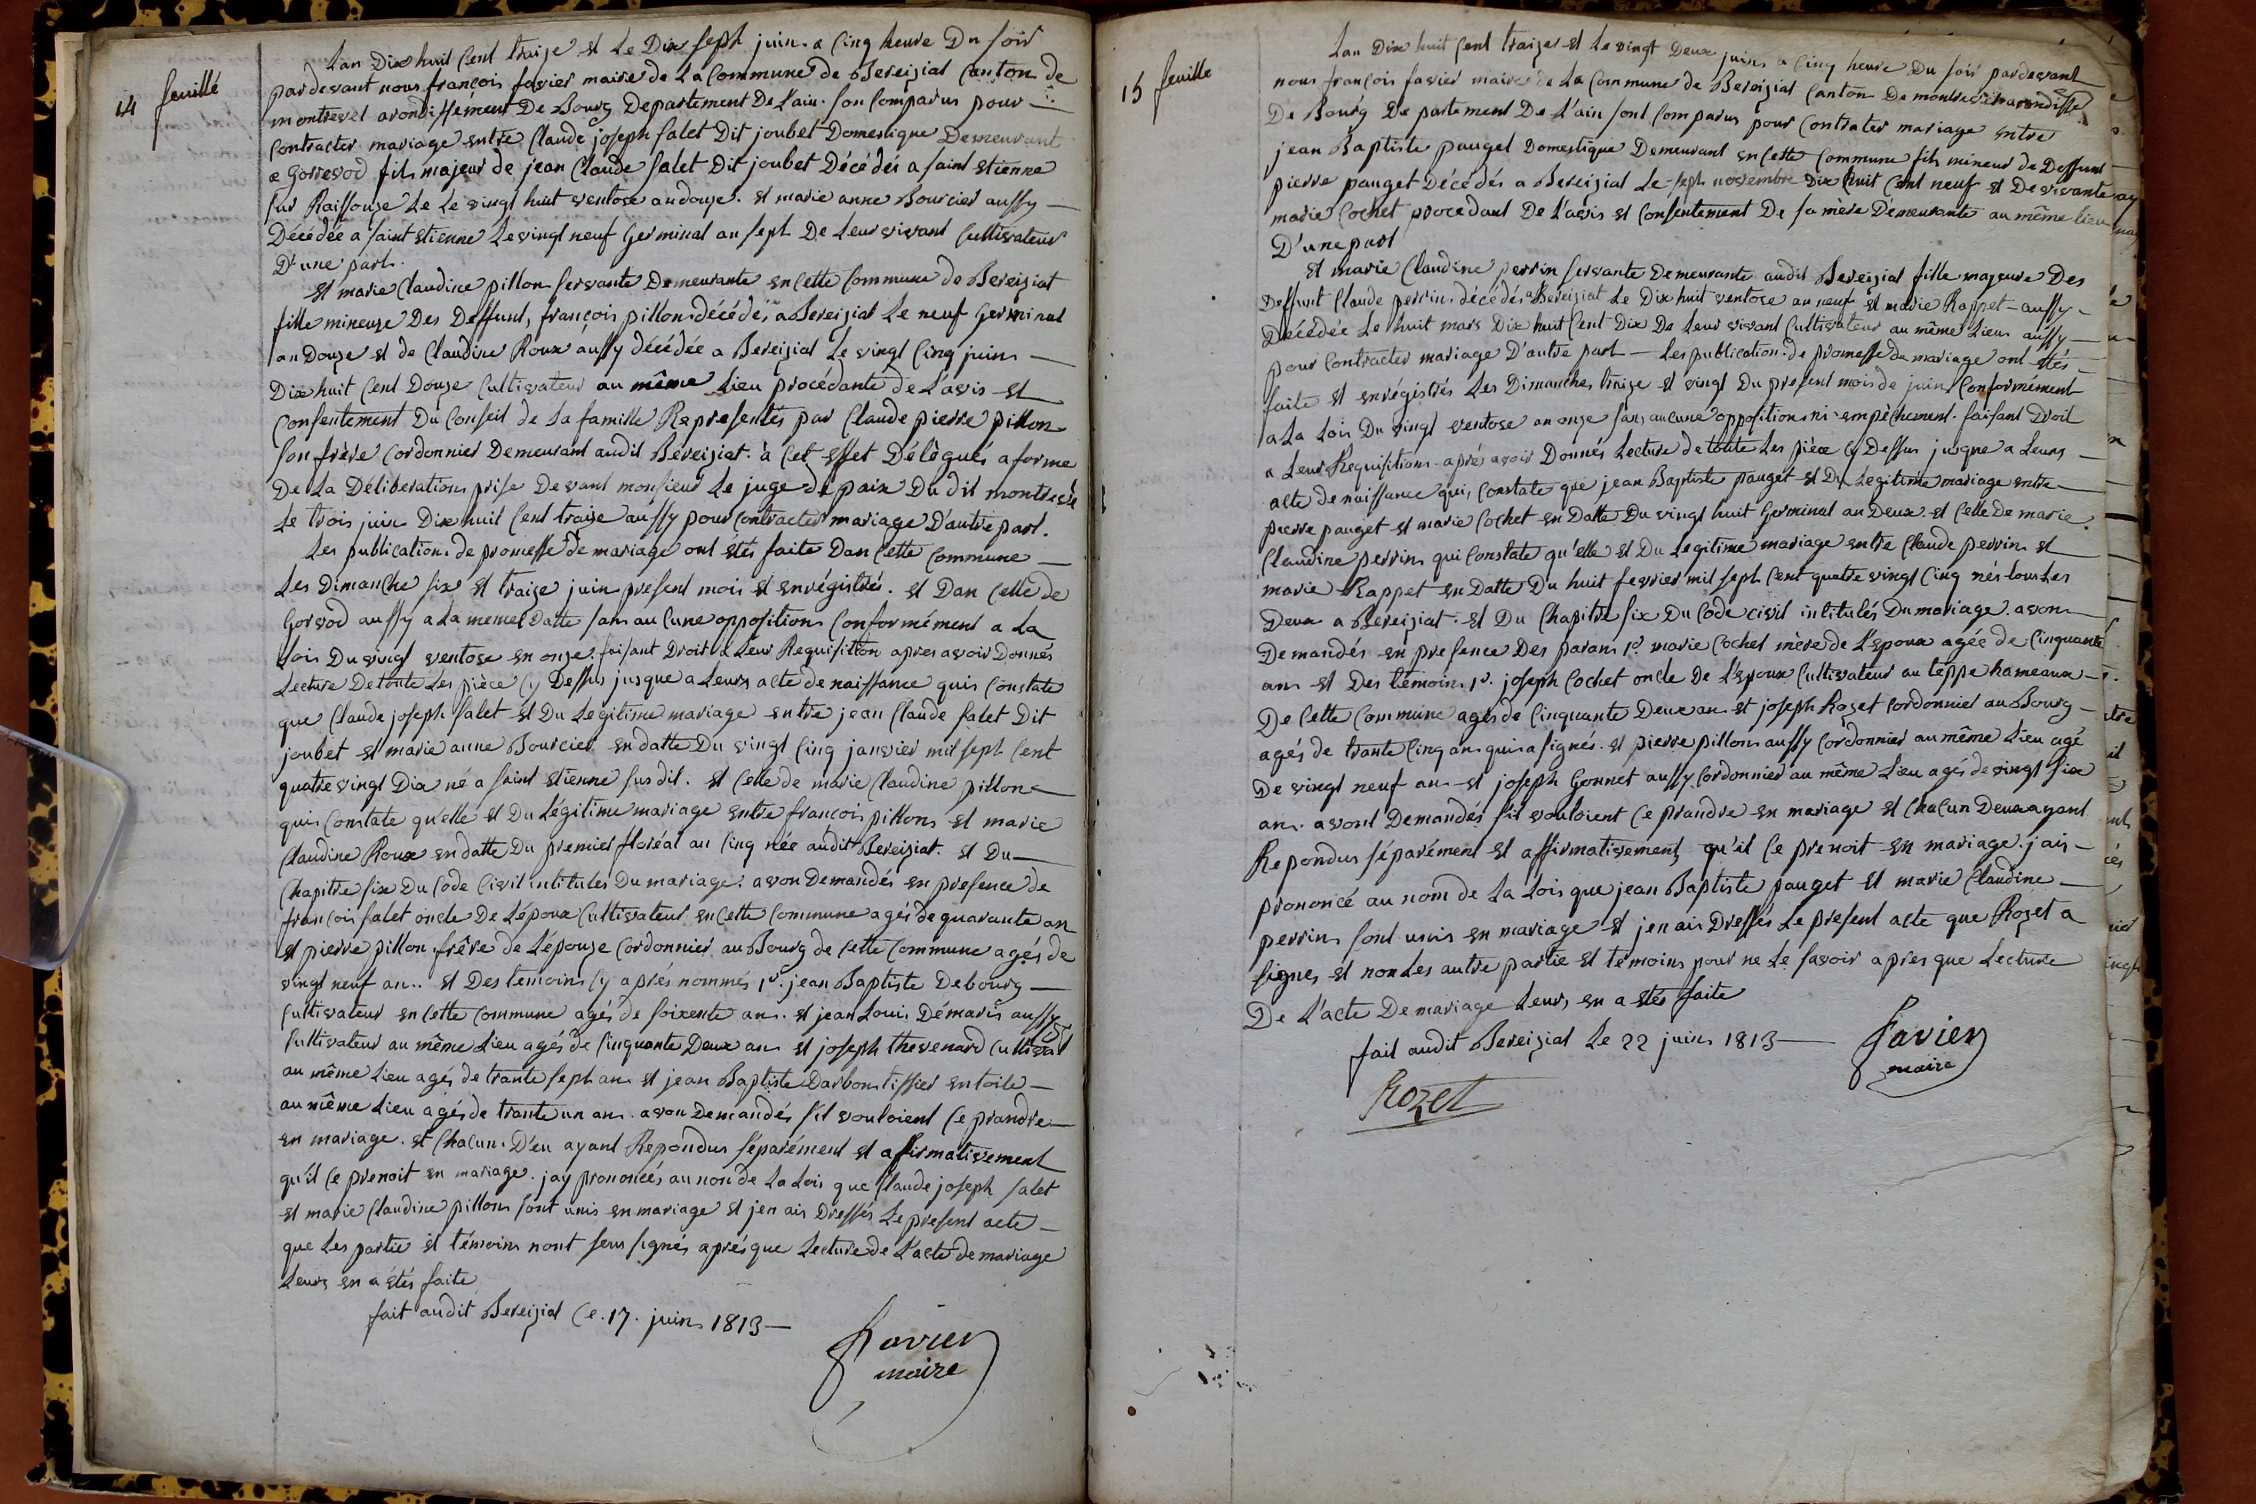 14 feuillé
Lan Dix huit Cent traize et Le Dix sept juin a Cinq heure Du soir
pardevant nous françois favier maire de La Commune de Bereiziat Canton de
montrevel arondissement De Bourg Departement De L'ain. son Comparus pour
Contracter mariage entre Claude joseph falet Dit joubet Domestique Demeurant
a Gorrevod fils majeur de jean Claude falet Dit joubet Décédés a saint Etienne
sur Raissouze Le Le vingt huit ventose an douze. et marie anne Bourcier aussy
Décédée a saint Etienne Le vingt neuf Germinal an sept De Leur vivant Cultivateur
D'une part.
Et marie Claudine pillon servante Demeurante en Cette Commune de Bereiziat
fille mineure Des Deffunt, françois pillon décédés a Bereiziat Le neuf Germinal
an Douze et de Claudine Roux aussy décédée a Bereiziat Le vingt Cinq juin
Dix huit Cent Douze Cultivateur au même Lieu procédante de L'avis et
Consentement Du Conseil de sa famille Representés par Claude pierre pillon
son frère Cordonnier Demeurant audit Bereiziat. à Cet effet Délègués a forme
De La Déliberation prise Devant monsieur Le juge de paix Du dit montrevel
Le trois juin Dix huit Cent traize aussy pour Contracter mariage D'autre part.
Les publication de promesse de mariage ont étés faite Dan Cette Commune
Les Dimanche six et traize juin present mois et enrégistrés. et Dan Celle de
Gorvod aussy a La meme Datte sans aucune opposition Conformément a La
Lois Du vingt ventose en onze. faisant Droit a Leur Requisition apres avoir Donnés
Lecture De toute Les pièce Cy Dessus jusque a Leurs acte de naissance quis Constate
que Claude joseph falet et Du Légitime mariage entre jean Claude falet Dit
joubet et marie anne Bourcier en datte Du vingt Cinq janvier mil sept Cent
quatre vingt Dix né a saint Etienne susdit. et Celle de marie Claudine pillon
quis Constate qu'elle et Du Légitime mariage entre françois pillon et marie
Claudine Roux en datte Du premier floréal an Cinq née audit Bereiziat. et Du
Chapitre six Du Code Civil intitules Du mariage. avon Demandés en presence de
françois falet oncle De L'époux Cultivateur en Cette Commune agés de quarante an
et pierre pillon frère de L'épouze Cordonnier au Bourg de Cette Commune agés de
vingt neuf an.. et Des temoins Cy aprés nommés 1°. jean Baptiste Debourg
Cultivateur en Cette Commune agés de soixente an. et jean Louis Démaris aussy
Cultivateur au même Lieu agés de Cinquante Deux an et joseph thevenard Cultivat
au même Lieu agés de trante sept an et jean Baptiste Darbon tissier en toile
au même Lieu agés de trante un an. avon Demandés s'il vouloient Ce prandre
en mariage. et Chacun D'eu ayant Repondus séparément et affirmativement
qu'il Ce prenoit en mariage. jay prononcés au non de La Lois que Claude joseph falet
et marie Claudine pillon sont unis en mariage et jen ais Dressés Le present acte
que Les partie et témoins nont seu signés aprés que Lecture de L'acte de mariage
Leurs en a étés faite
fait audit Bereiziat Ce. 17. juin 1813
Favier
maire
15 feuille
Lan Dix huit Cent traize et Le vingt Deux juin a Cinq heure Du soir pardevant
nous françois favier maire de La Commune de Bereiziat Canton De montrevel arondisse
De Bourg De partement De L'ain sont Comparus pour Contrater mariage entre
jean Baptiste pauget Domestique Demeurant en Cette Commune fils mineur de Deffunt
pierre pauget Décédés a Bereiziat Le sept novembre Dix huit Cent neuf et De vivante
marie Cochet procedant De L'avis et Consentement De sa mère Demeurante au même Lieu
D'une part
Et marie Claudine perrin servante Demeurante audit Bereiziat fille majeure Des
Deffunt Claude perrin décédés a Bereiziat Le Dix huit ventose an neuf et marie Rappet aussy
Décédée Le huit mars Dix huit Cent Dix De Leur vivant Cultivateur au même Lieu aussy
pour Contracter mariage D'autre part Les publication de promesse de mariage ont étés
faite et enrégistrés Les Dimanches traize et vingt Du present mois de juin Conformément
a La Lois Du vingt ventose an onze sans aucune opposition ni empèchement. faisant Droit
a Leur Requisition aprés avoir Donnés Lecture de toute Les pièce Cy Dessus jusque a Leurs
acte de naissance quis Constate que jean Baptiste pauget et Du Légitime mariage entre
pierre pauget et marie Cochet en Datte Du vingt huit Germinal an Deux et Celle De marie
Claudine perrin qui Constate qu'elle et Du Legitime mariage entre Claude perrin et
marie Rappet en Datte Du huit fevrier mil sept Cent quatre vingt Cinq nés tous Les
Deux a Bereiziat. et Du Chapitre six Du Code Civil intitulés Du mariage. avon
Demandés en presence Des paran 1° marie Cochet mère de L'Epoux agée de Cinquante
an et Des témoin. 1°. joseph Cochet oncle De L'epoux Cultivateur au téppe hameaux
De Cette Commune agés de Cinquante Deux an et joseph Rozet Cordonnier au Bourg
agés de trante Cinq an quis a signés. et pierre pillon aussy Cordonnier au même Lieu agé
De vingt neuf an et joseph Gonnet aussy Cordonnier au même Lieu agés de vingt six
an. avont Demandés s'il vouloient Ce prandre en mariage et Chacun Deux ayant
Repondus séparément et affirmativement qu'il Ce prenoit en mariage. jais
prononcé au nom de La Lois que jean Baptiste pauget et marie Claudine
perrin sont unis en mariage et jen ais Dressés Le present acte que Rozet a
signes et non Les autre partie et temoins pour ne Le savoir apres que Lecture
De L'acte De mariage Leurs en a étés faite
fait audit Bereiziat Le 22 juin 1813
Favier
maire
Rozet